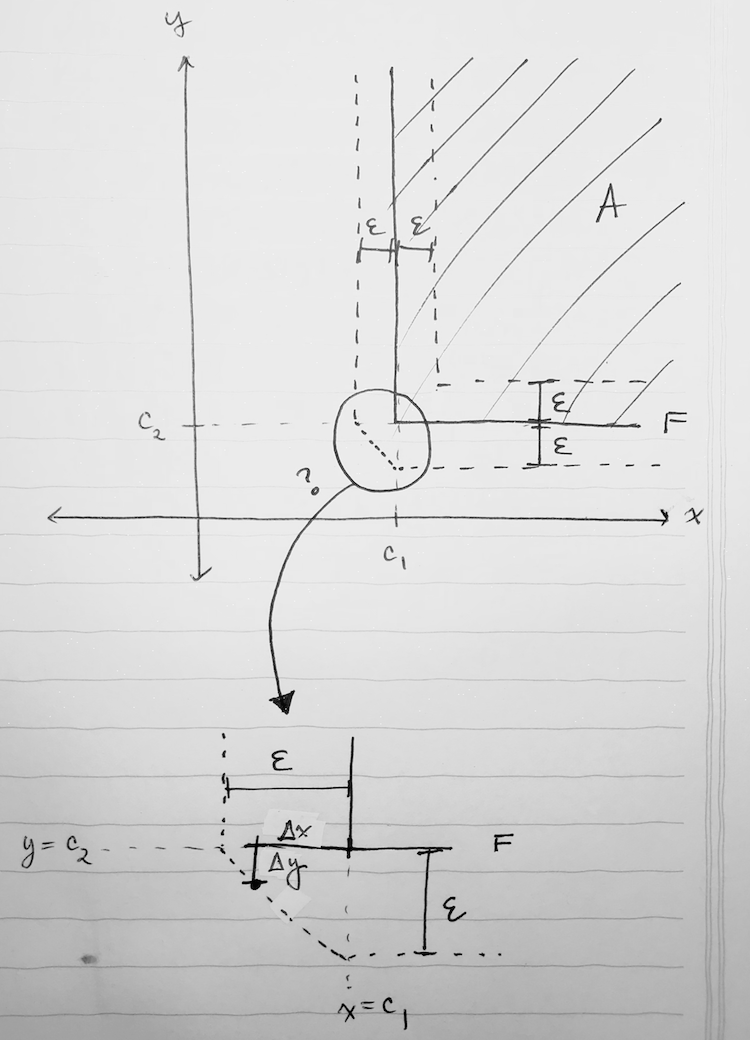 y
A
ε ε
ε
c₂
F
ε
?
x
c₁
ε
Δx
y = c₂
F
Δy
ε
x = c₁